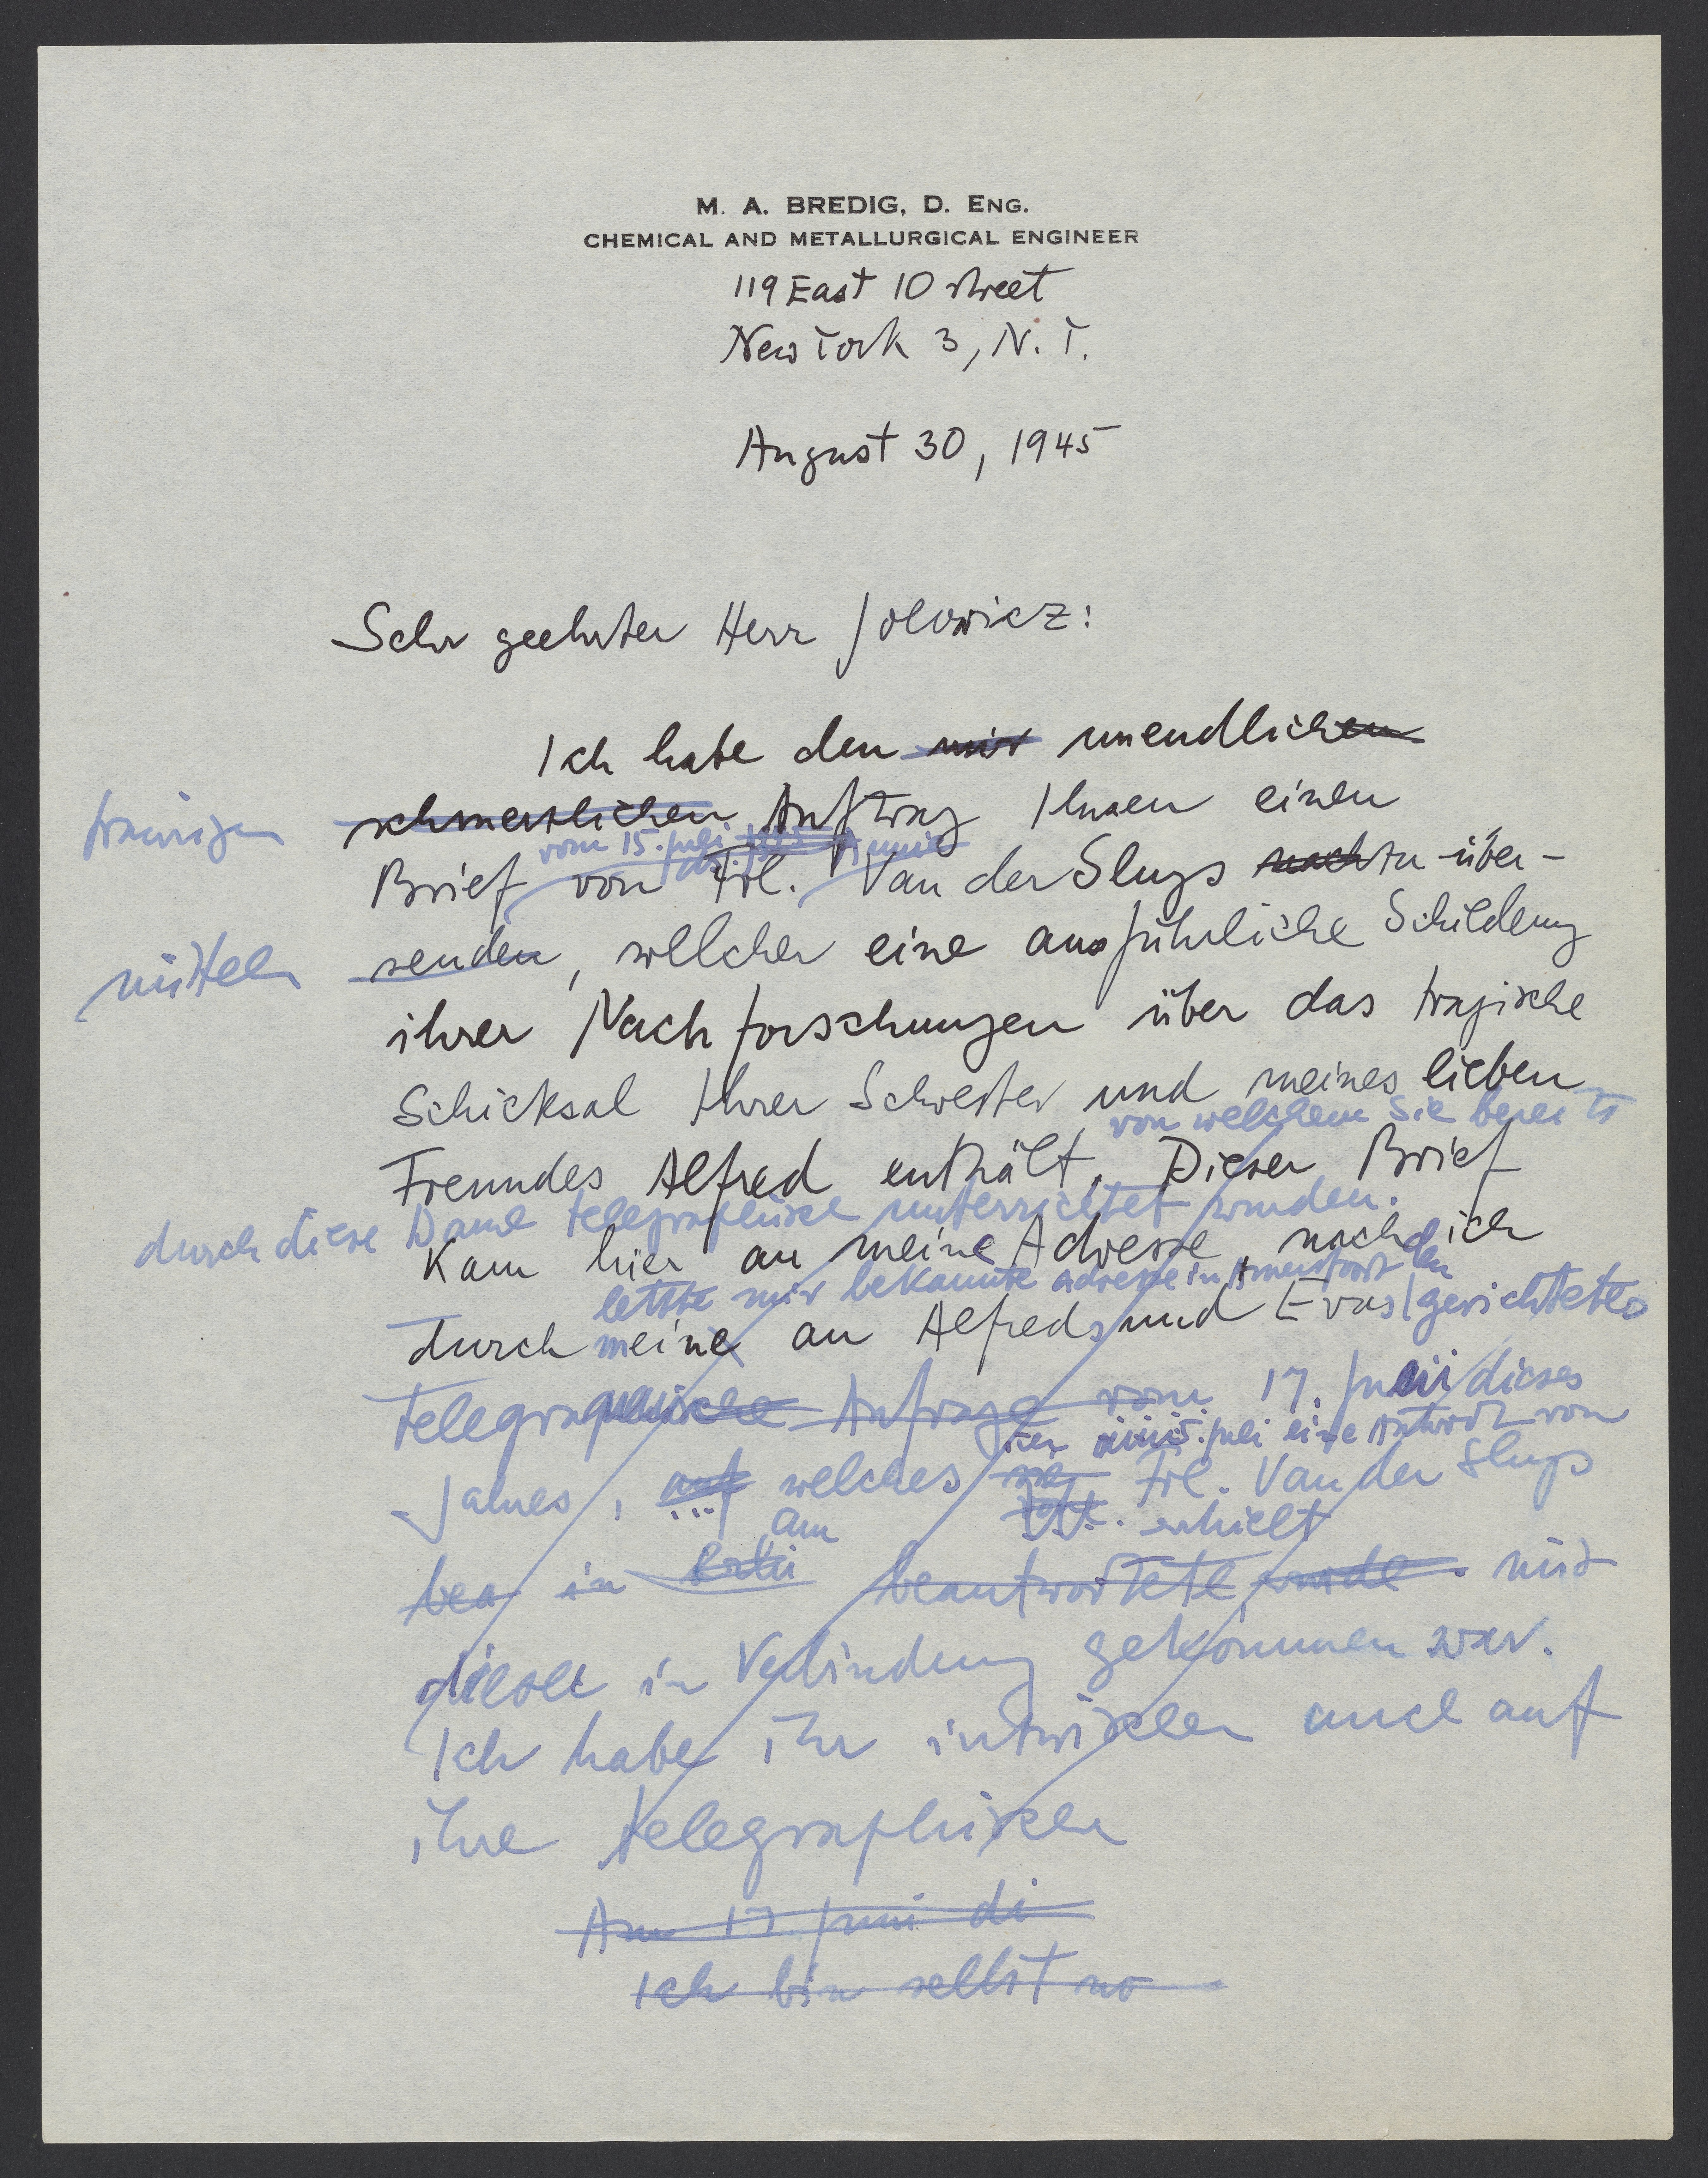 M. A. BREDIG, D. ENG.
CHEMICAL AND METALLURGICAL ENGINEER
119 East 10 street
New York 3, N. Y.
August 30, 1945
Sehr geehrter Herr Jolowicz:
Ich habe den mir unendlichen
traurigen schmerzlichen Auftrag Ihnen einen
vom 15. Juli
Brief von Frl. Van der Sluys zu über-
mitteln senden, welcher eine ausführliche Schilderung
ihrer Nachforschungen über das tragische
Schicksal Ihrer Schwester und meines lieben
von welchem Sie bereits
Freundes Alfred enthält. Dieser Brief
durch diese Dame telegraphisch unterrichtet wurden.
kam hier an meine Adresse, nachd ich
letzte mir bekannte Adresse in
durch meine an Alfreds und Evas gerichtetes
telegraphische Anfrage vom 17. Juni dieses
Juli eine Antwort von
Jahres, auf welches Frl. Van der Sluys
am erhielt
bea in beantwortete wurde mit
dieser in Verbindung gekommen war.
Ich habe ihr inzwischen auch auf
ihre telegraphischen
Am 17 Juni di
Ich bin selbst no